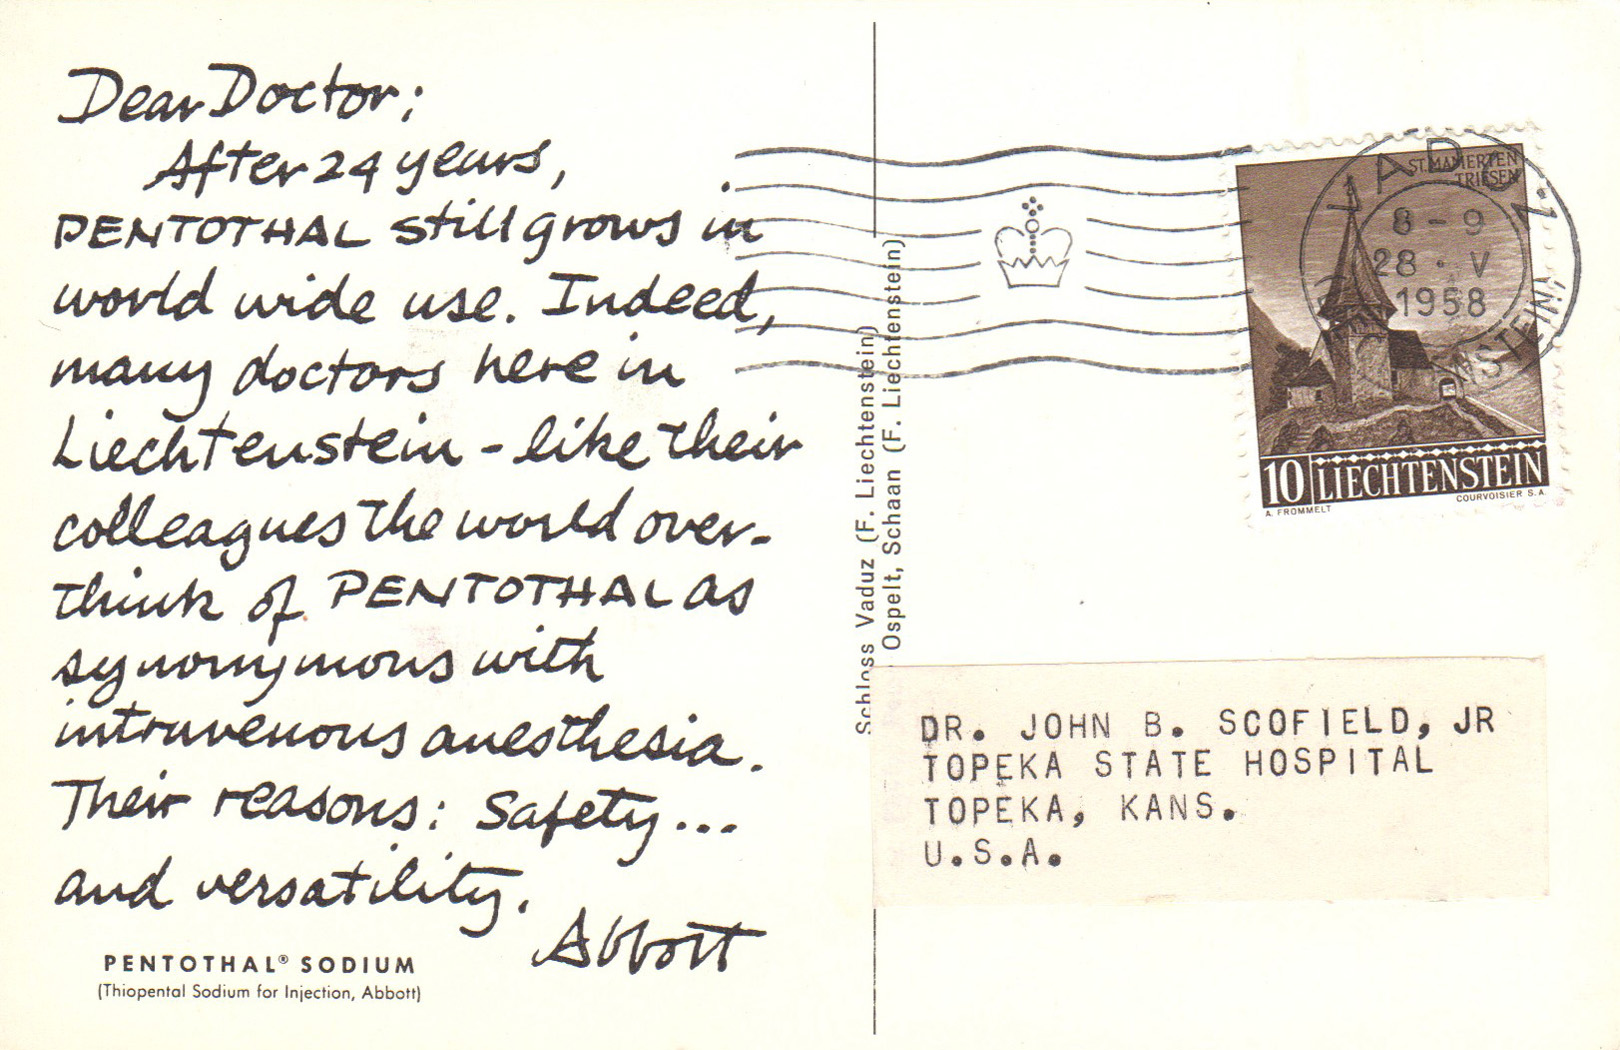 Dear Doctor;
After 24 years,
PENTOTHAL still grows in
world wide use. Indeed,
many doctors here in
Liechtenstein - like their
colleagues the world over-
think of PENTOTHAL as
synonymous with
intravenous anesthesia.
Their reasons: Safety...
and versatility.
Abbott
PENTOTHAL® SODIUM
(Thiopental Sodium for Injection, Abbott)
Schloss Vaduz (F. Liechtenstein)
Ospelt, Schaan (F. Liechtenstein)
ST. MAMERTEN
TRIESEN
8-9
28·V
1958
10 LIECHTENSTEIN
A. FROMMELT
COURVOISIER S.A.
DR. JOHN B. SCOFIELD, JR
TOPEKA STATE HOSPITAL
TOPEKA, KANS.
U.S.A.